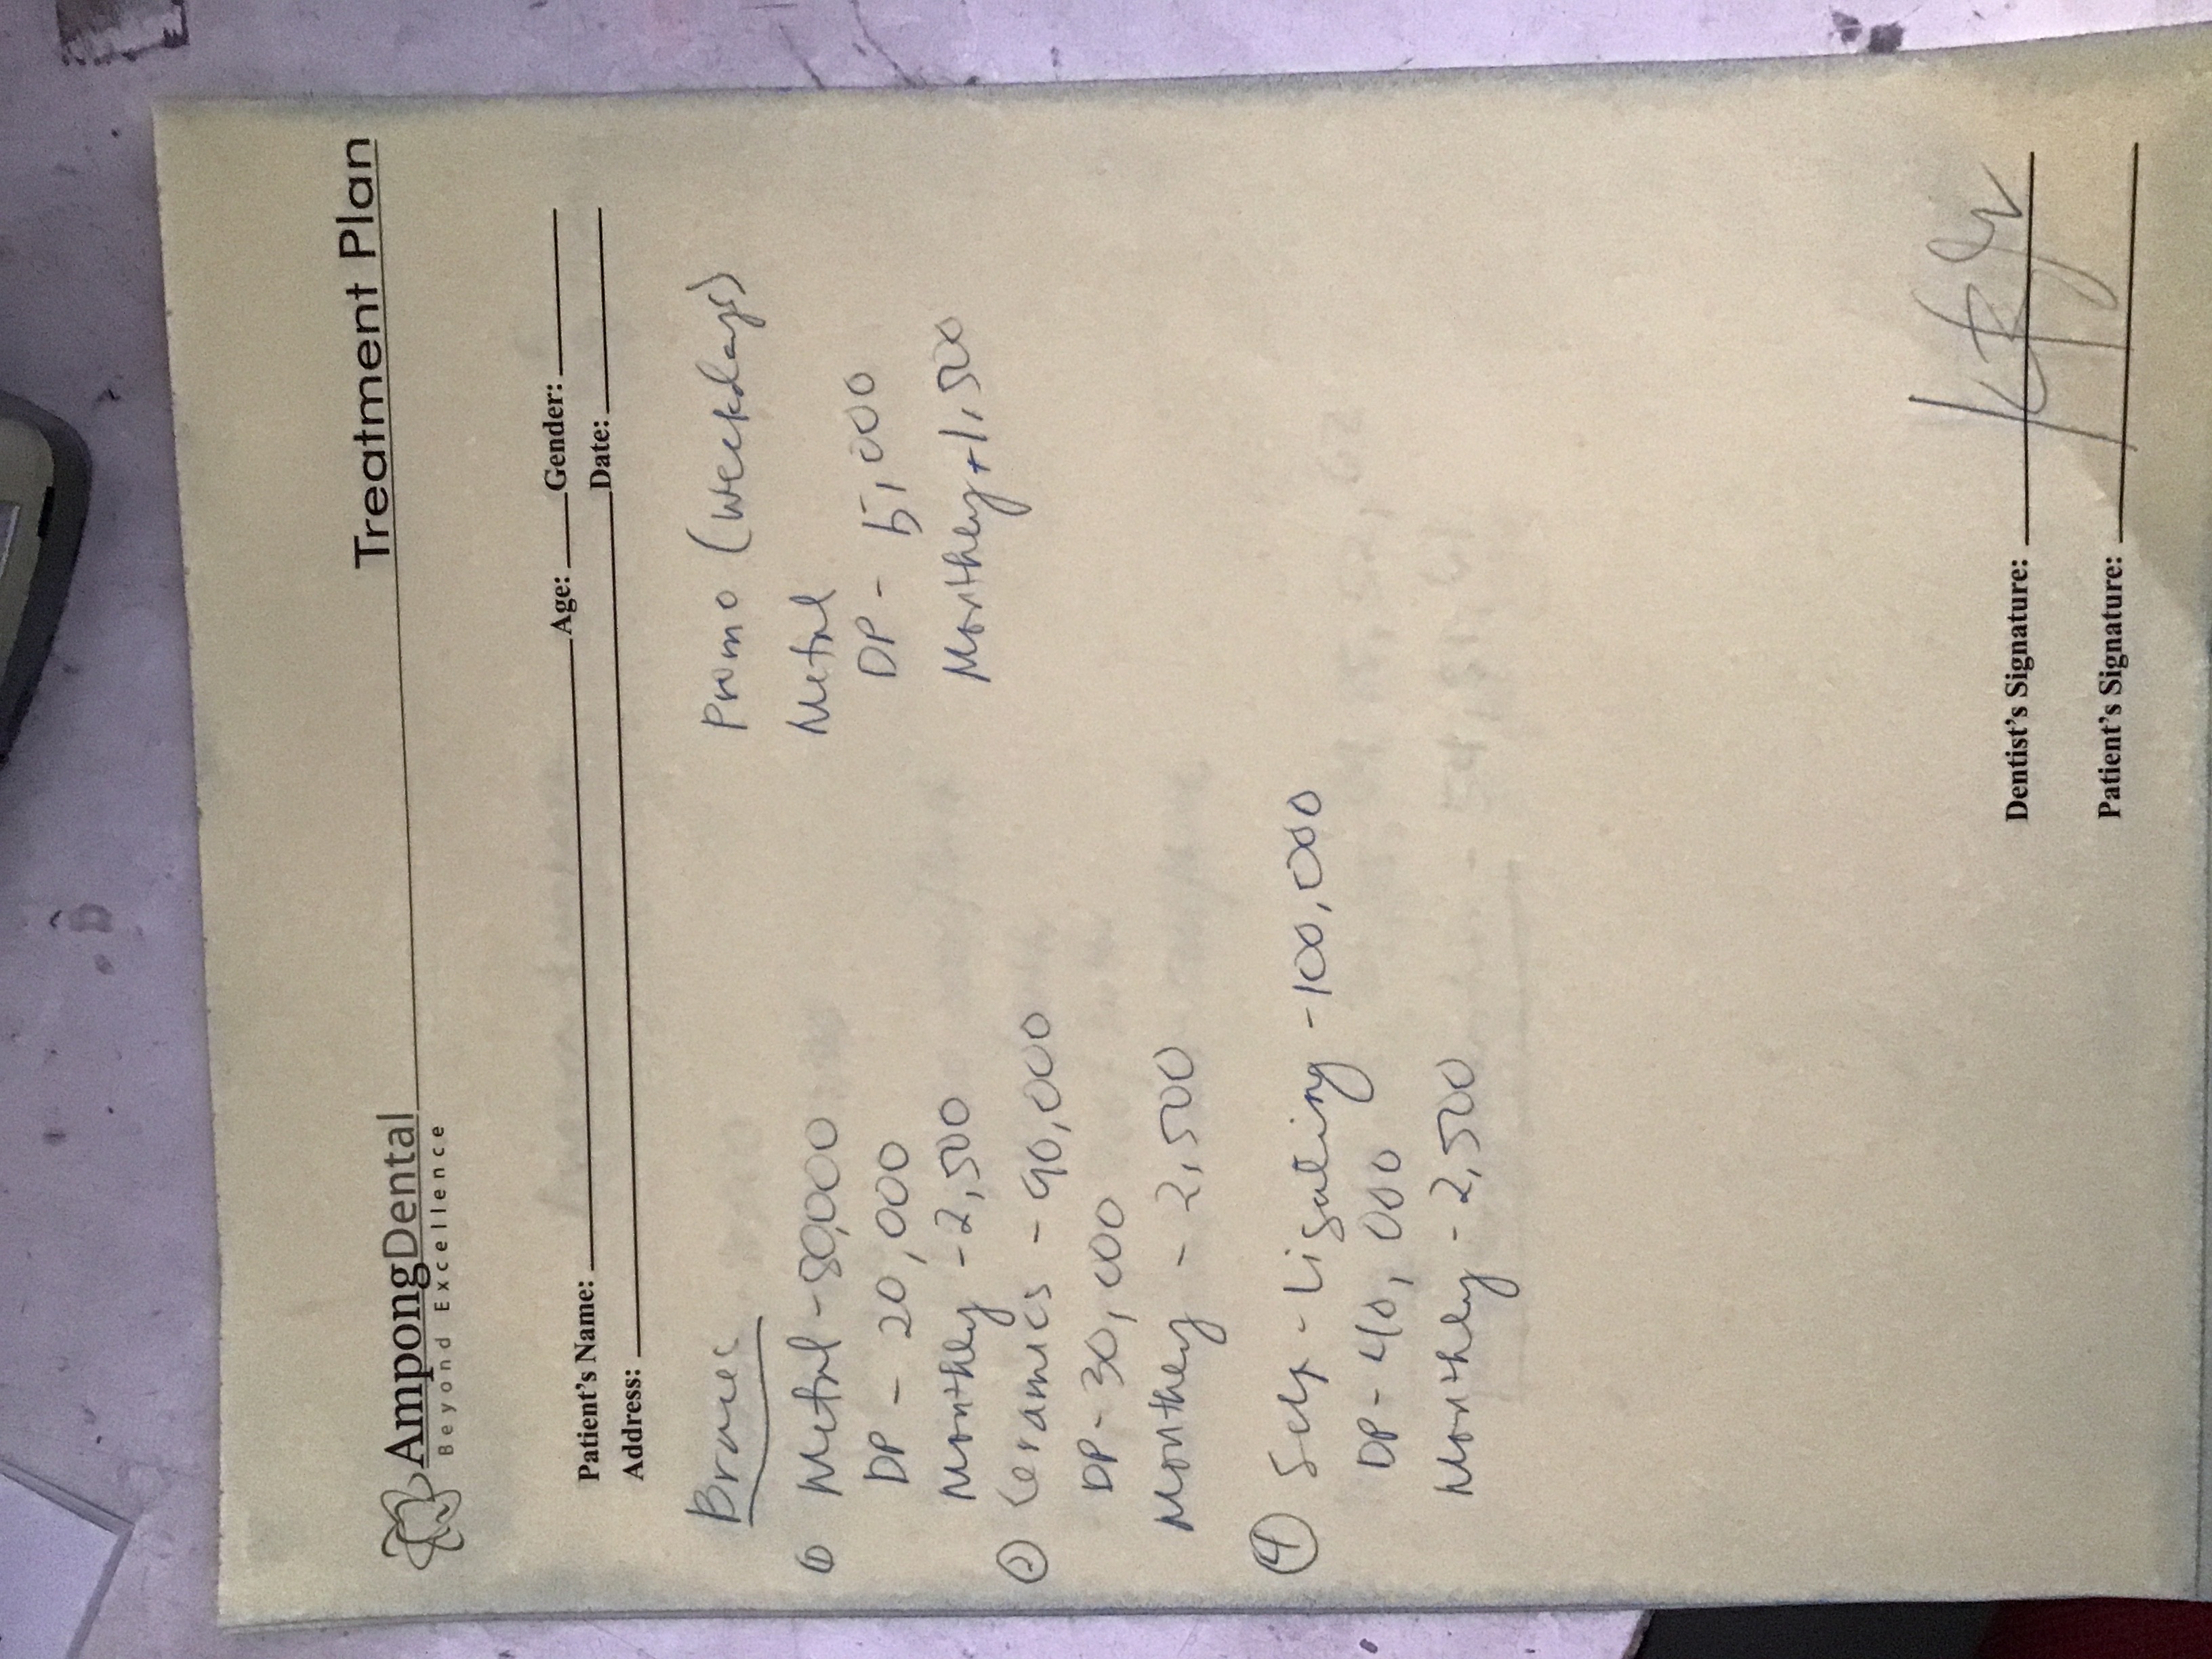 AmpongDental
Beyond Excellence
Treatment Plan
Patient's Name: Age: Gender:
Address: Date:
Braces
① Metal - 80,000
DP - 20,000
Monthly - 2,500
② Ceramics - 90,000
DP - 30,000
Monthly - 2,500
④ Self - Ligating - 100,000
DP - 40,000
Monthly - 2,500
Promo (weekdays)
Metal
DP - 5,000
Monthly + 1,500
Dentist's Signature:
Patient's Signature: